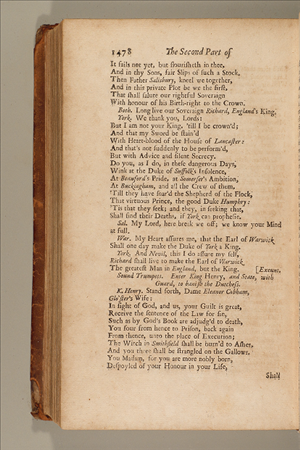 1478 The Second Part of
It fails not yet, but flourisheth in thee,
And in thy Sons, fair Slips of such a Stock.
Then Father Salisbury, kneel we together,
And in this private Plot be we the first,
That shall salute our rightful Soveraign
With honour of his Birth-right to the Crown.
Both. Long live our Soveraign Richard, England's King.
York. We thank you, Lords:
But I am not your King, 'till I be crown'd;
And that my Sword be stain'd
With Heart-blood of the House of Lancaster:
And that's not suddenly to be perform'd,
But with Advice and silent Secrecy.
Do you, as I do, in these dangerous Days,
Wink at the Duke of Suffolk's Insolence,
At Beauford's Pride, at Somerset's Ambition,
At Buckingham, and all the Crew of them,
'Till they have snar'd the Shepherd of the Flock,
That virtuous Prince, the good Duke Humphry:
'Tis that they seek; and they, in seeking that,
Shall find their Deaths, if York can prophesie.
Sal. My Lord, here break we off; we know your Mind
at full.
War. My Heart assures me, that the Earl of Warwick
Shall one day make the Duke of York a King.
York. And Nevil, this I do assure my self,
Richard shall live to make the Earl of Warwick
The greatest Man in England, but the King. [Exeunt.
Sound Trumpets. Enter King Henry, and State, with
Guard, to banish the Dutchess.
K. Henry. Stand forth, Dame Eleanor Cobham,
Glo'ster's Wife:
In sight of God, and us, your Guilt is great,
Receive the sentence of the Law for sin,
Such as by God's Book are adjudg'd to death,
You four from hence to Prison, back again
From thence, unto the place of Execution;
The Witch in Smithfield shall be burn'd to Ashes,
And you three shall be strangled on the Gallows.
You Madam, for you are more nobly born,
Despoyled of your Honour in your Life,
Shall